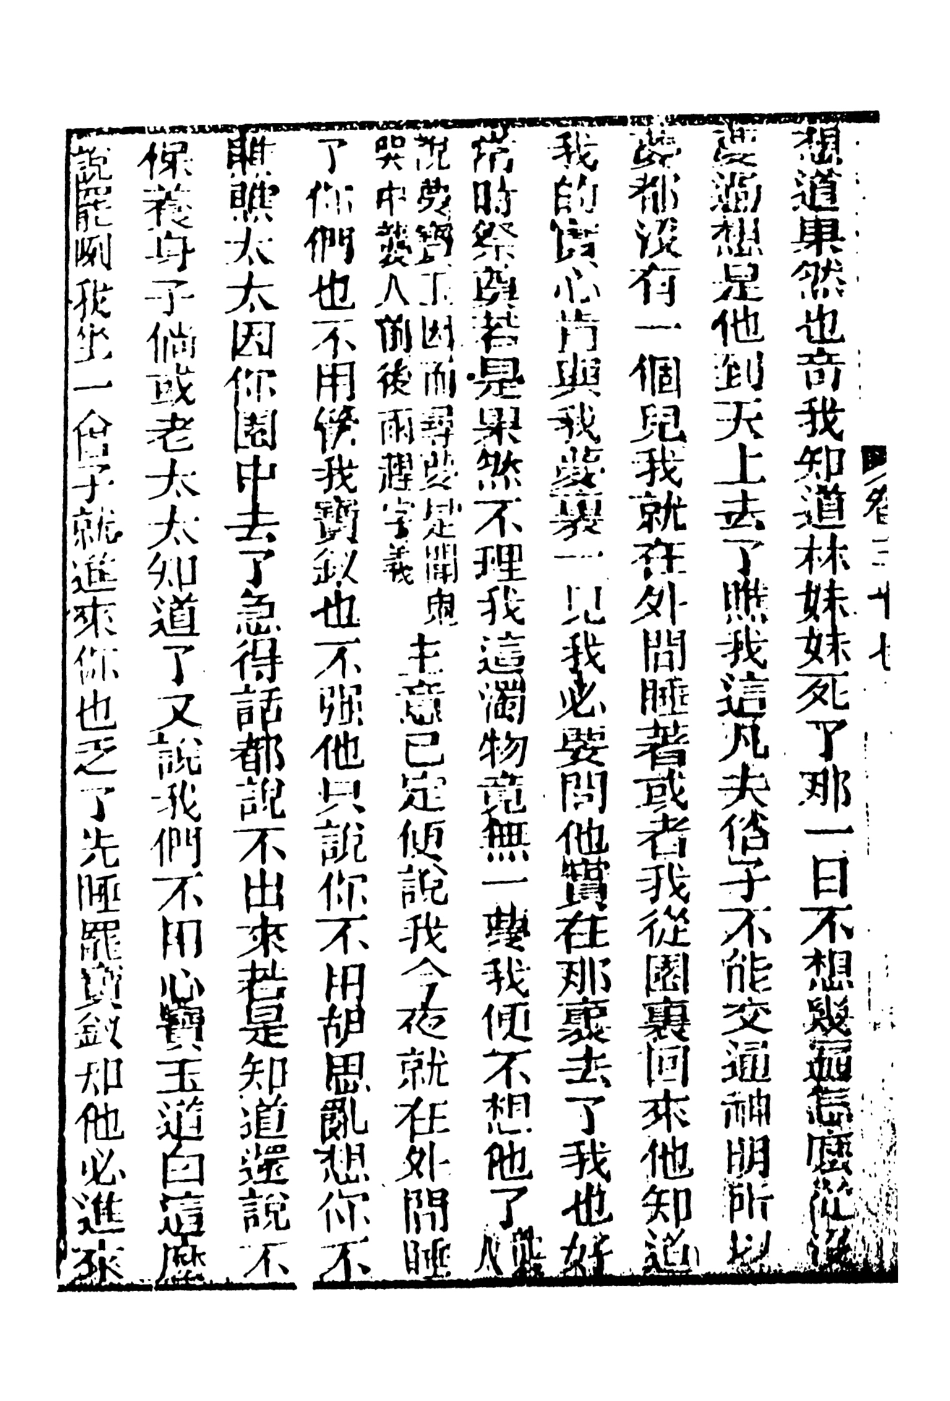 想道果然也奇我知道林妹妹死了那一日不想幾遍怎麼從沒
夢過想是他到天上去了瞧我這凡夫俗子不能交通神明所以
夢都没有一個兒我就在外間睡著或者我從園裏回來他知道
我的實心肯與我夢裏一見我必要問他實在那裏去了我也好
常時祭奠若是果然不理我這濁物竟無一夢我便不想他了
說夢寶玉因而尋夢是聞鬼
哭中襲人前後兩趕字義
主意已定便說我今夜就在外間睡
了你們也不用管我寶釵也不强他只說你不用胡思亂想你不
瞧瞧太太因你園中去了急得話都說不出來若是知道還說不
保養身子倘或老太太知道了又說我們不用心寶玉道白這麼
說罷咧我坐一會子就進來你也乏了先睡罷寶釵知他必進來
卷三十七